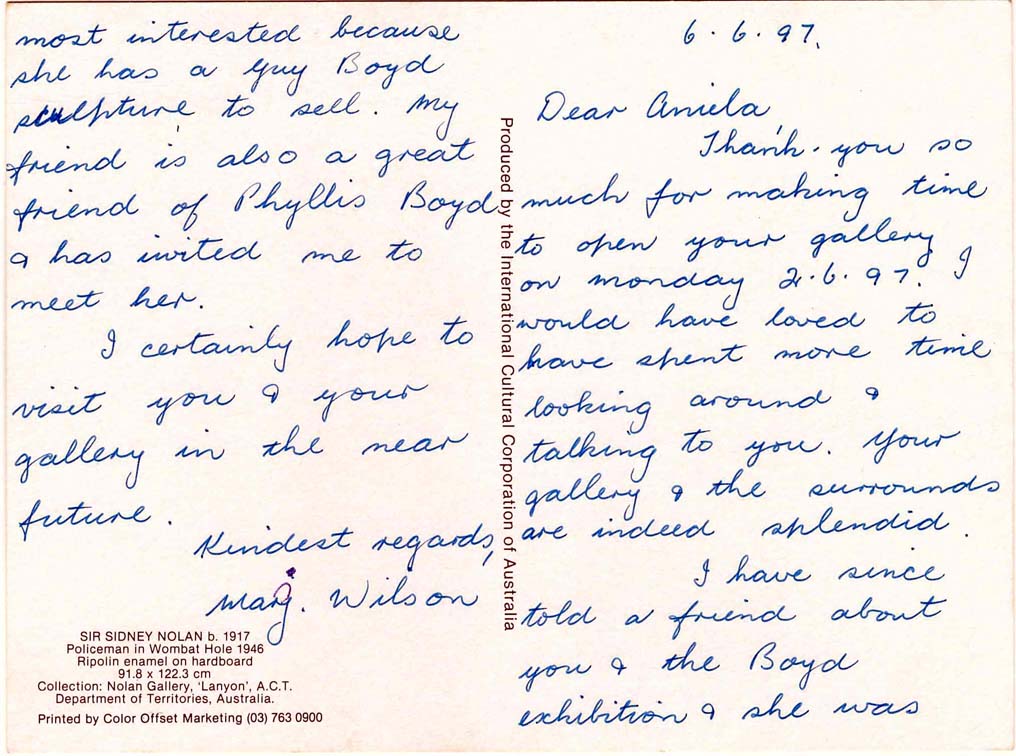 6.6.97.
Dear Aniela,
Thank-you so
much for making time
to open your gallery
on monday 2.6.97. I
would have loved to
have spent more time
looking around &
talking to you. Your
gallery & the surrounds
are indeed splendid.
I have since
told a friend about
you & the Boyd
exhibition & she was
most interested because
she has a Guy Boyd
sculpture to sell. My
friend is also a great
friend of Phyllis Boyd
& has invited me to
meet her.
I certainly hope to
visit you & your
gallery in the near
future.
Kindest regards,
Marg. Wilson
SIR SIDNEY NOLAN b. 1917
Policeman in Wombat Hole 1946
Ripolin enamel on hardboard
91.8 x 122.3 cm
Collection: Nolan Gallery, 'Lanyon', A.C.T.
Department of Territories, Australia.
Printed by Color Offset Marketing (03) 763 0900
Produced by the International Cultural Corporation of Australia